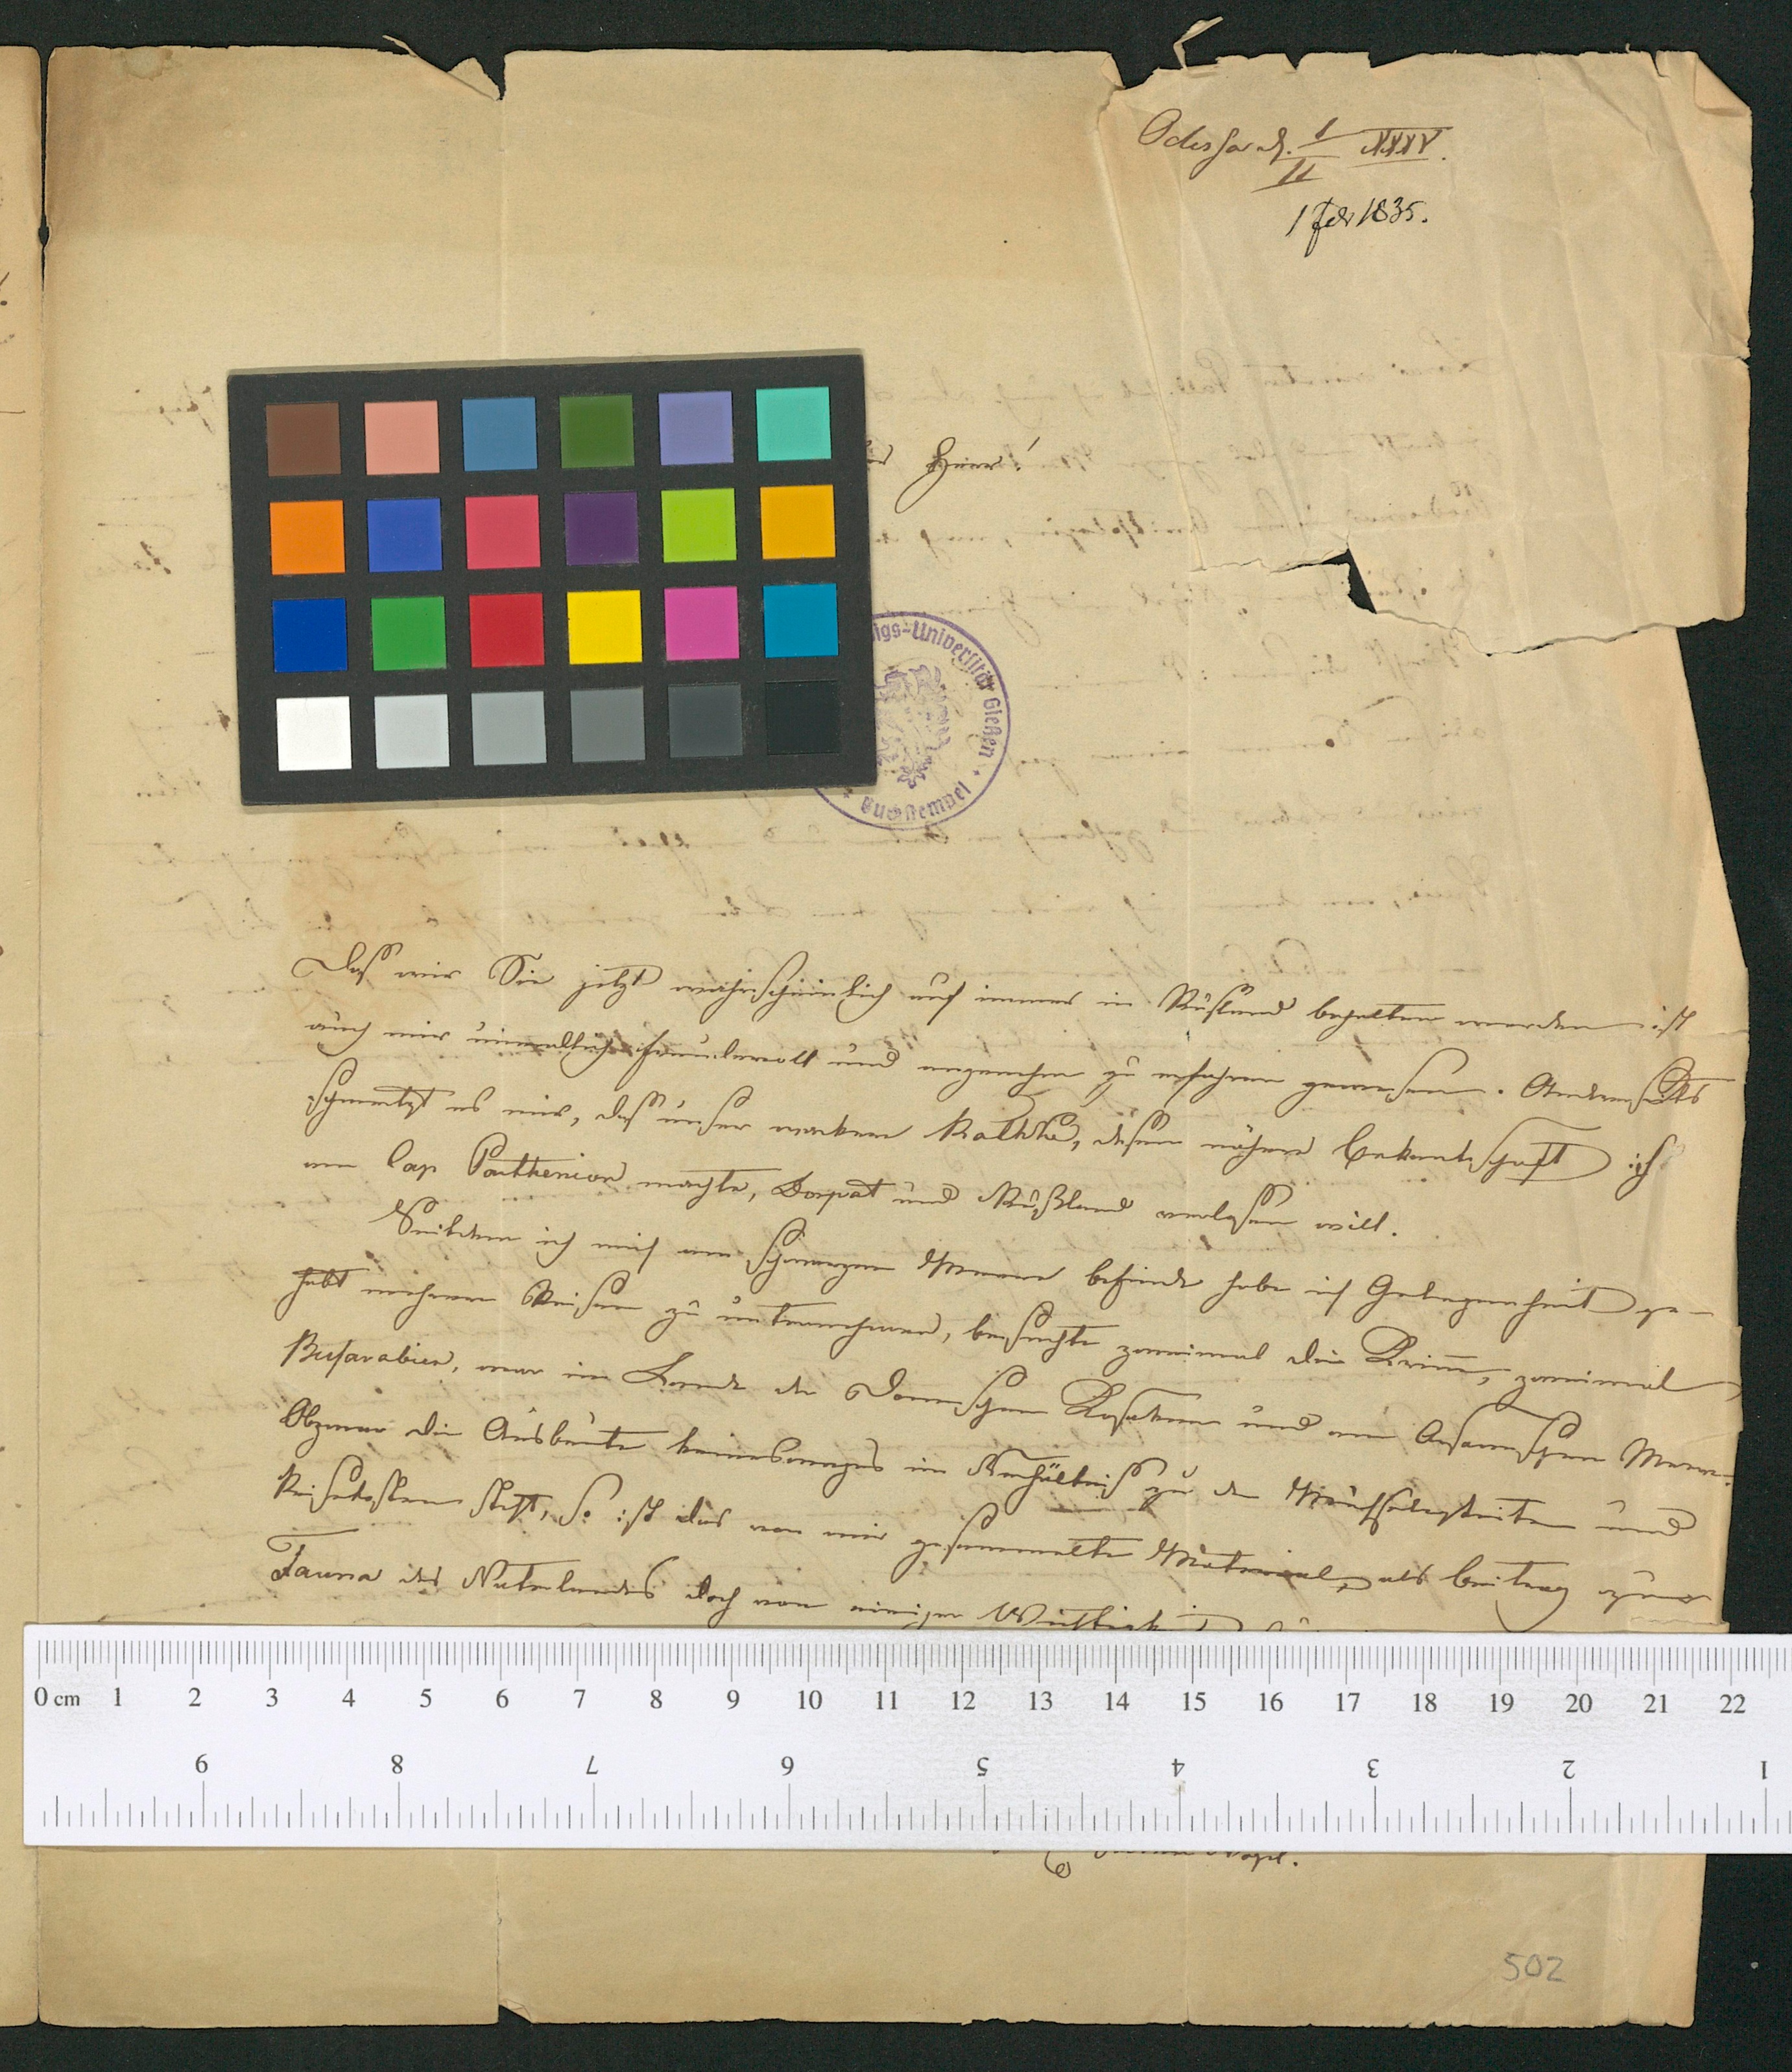 Odessa d. 1/II XXXV.
1 Febr 1835.
Herr!
igs-Universität Gießen
Buchstempel
Daß wir Sie jetzt wahrscheinlich auf immer in Rußland behalten werden ist
auch mir unendlich freudevoll und angenehm zu erfahren gewesen. Anderseits
schmertzt es mir, daß unser wackerer Rathke, deßen nähere Bekantschaft ich
am Cap Parthenion machte, Dorpat und Rußland verlaßen will.
Seitdem ich mich am schwarzen Meere befinde habe ich Gelegenheit ge-
habt mehrere Reisen zu unternehmen, besuchte zweimal die Krimm, zweimal
Beßarabien, war im Lande der Donischen Kosaken und am Asowschen Meere.
Obzwar die Ausbeute keinesweges im Verhältniß zu den Mühseligkeiten und
Reisekosten steht, so ist das von mir gesammelte Material, als Beitrag zur
Fauna des Vaterlandes doch von einiger Wichtigkeit
0 cm 1 2 3 4 5 6 7 8 9 10 11 12 13 14 15 16 17 18 19 20 21 22
9 8 7 6 5 4 3 2 1
502